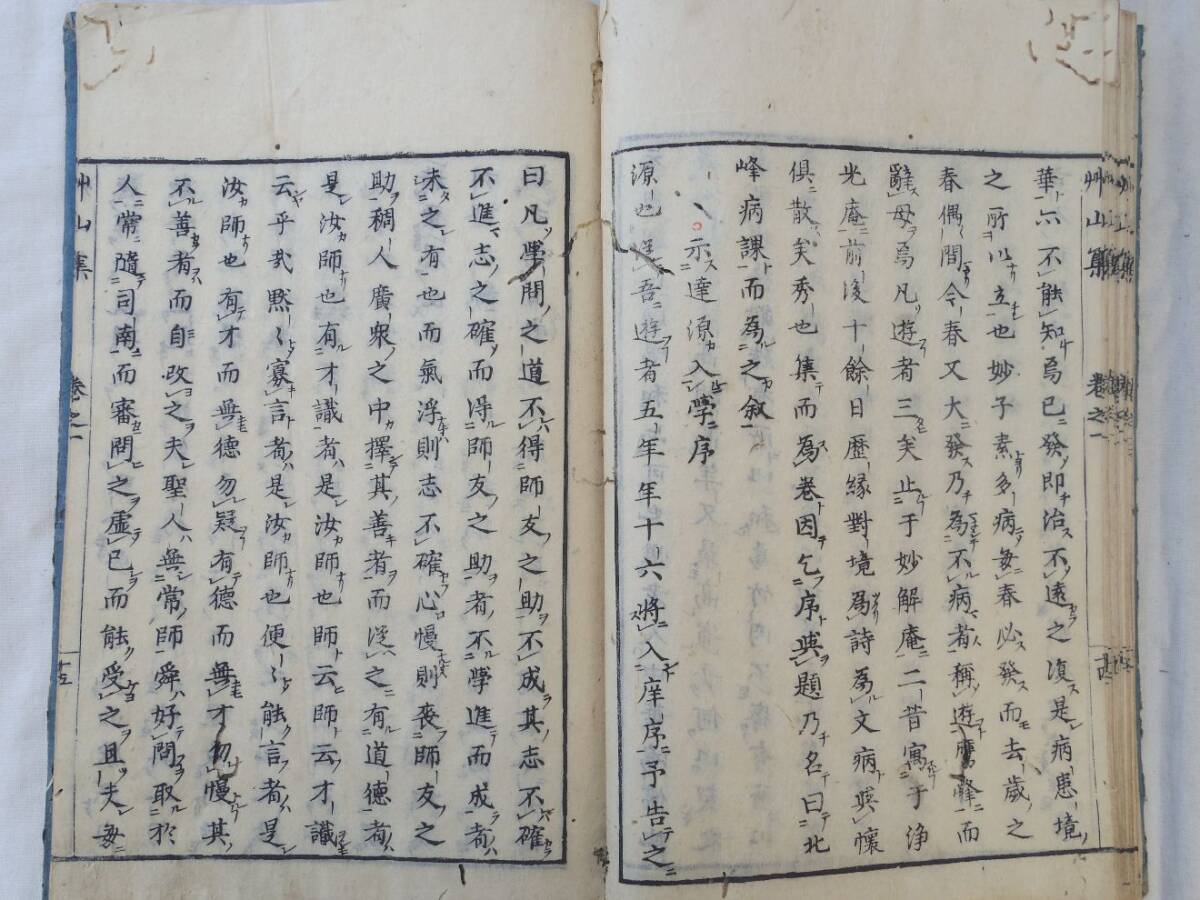 艸山集 卷之一
華亦不能知焉已發即治不遠之復是病患境
之所以立也妙子素多病每春必發而去歲之
春偶間今春又大發乃為不病者稱遊鷹峰而
辭母焉凡遊者三矣止于妙解庵二昔寓于淨
光庵前後十餘日歷緣對境為詩為文病與懷
俱散矣秀也集而為卷因乞序與題乃名曰北
峰病課而為之敘
示達源入學序
源也從吾遊者五年年十六將入庠序予告之
曰凡學問之道不得師友之助不成其志不確
不進志之確而得師友之助者不學進而成者
未之有也而氣浮則志不確心慢則喪師友之
助稠人廣衆之中擇其善者而從之有道德者
是汝師也有才識者是汝師也師云師云才識
云乎哉默默寡言者是汝師也便便能言者是
汝師也有才而無德勿疑有德而無才勿慢其
不善者而自改之夫聖人無常師舜好問取於
人常隨司南而審問之虛己而能受之且夫每
艸山集 卷之一 十五